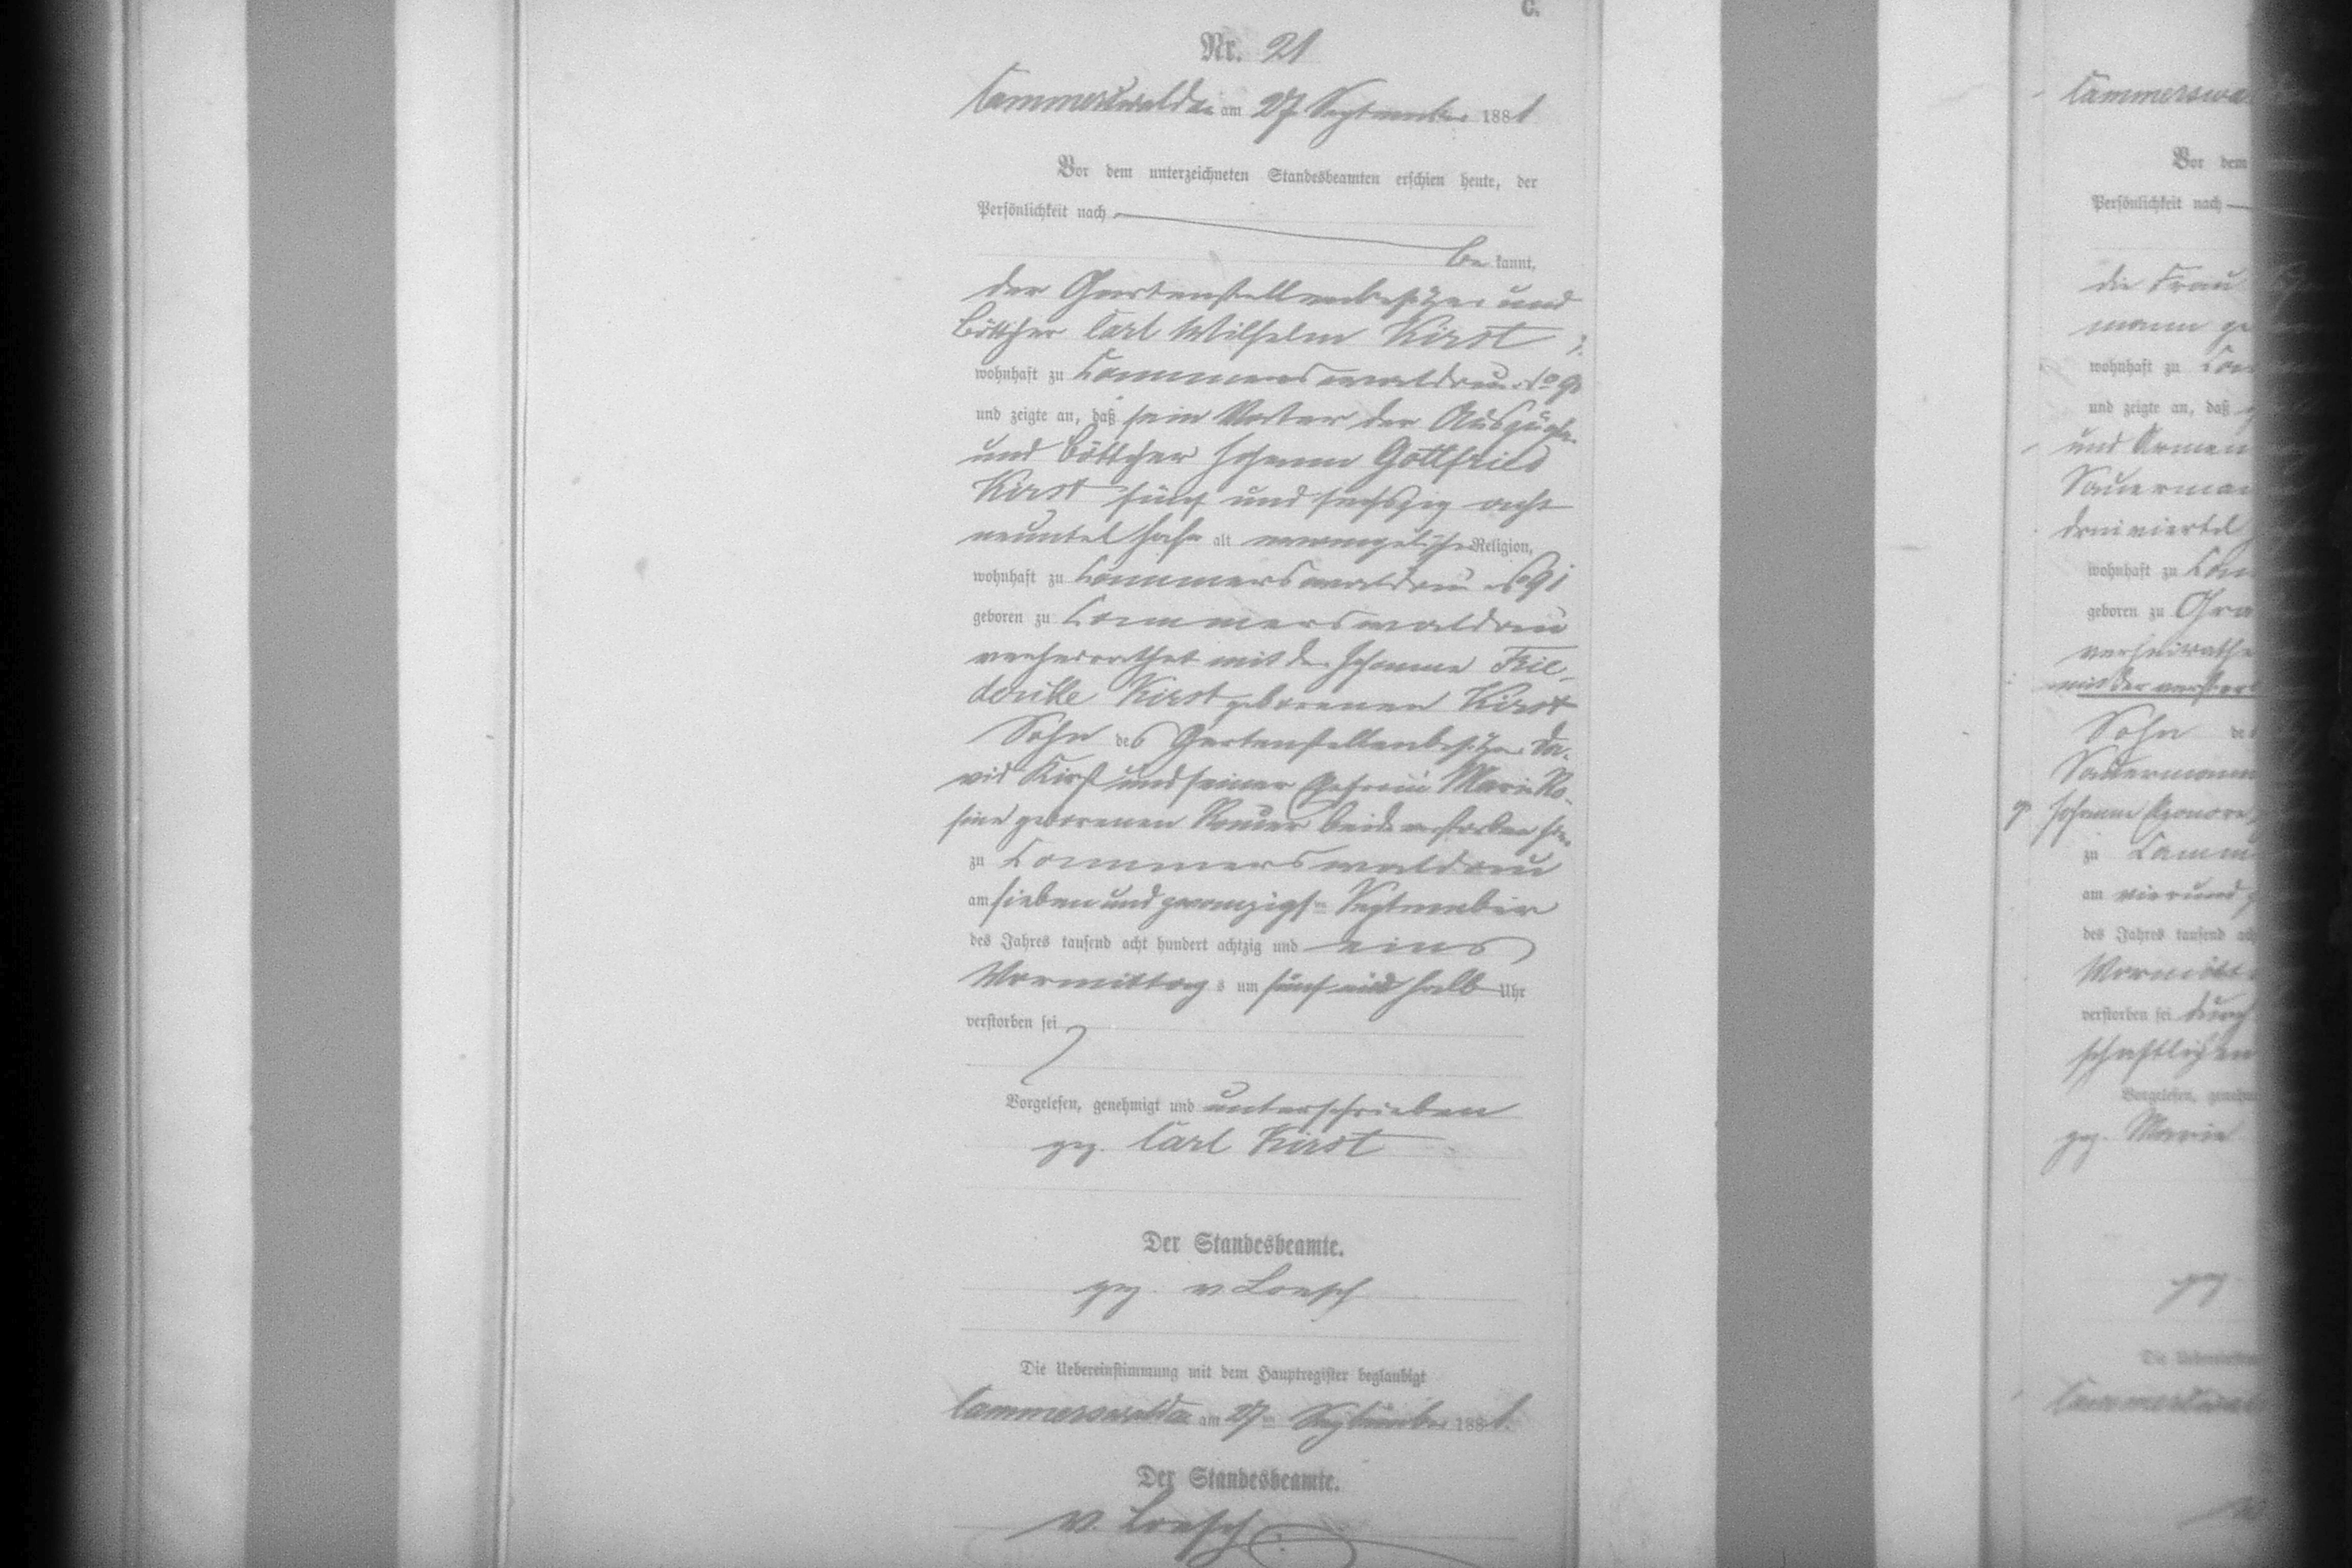 C.
Nr. 21
Cammerswaldau am 27 September 1881
Vor dem unterzeichneten Standesbeamten erschien heute, der
Persönlichkeit nach
be kannt,
der Gartenstellenbesitzer und
Böttcher Carl Wilhelm Kirst
wohnhaft zu Cammerswaldau
und zeigte an, daß sein Vater der Auszügler
und Böttcher Johann Gottfried
Kirst fünf und sechszig acht
neuntel Jahr alt evangelischer Religion,
wohnhaft zu Cammerswaldau
geboren zu Cammerswaldau
verheirathet mit der Johanne Frie-
dericke Kirst geborenen Kirst
Sohn des Gartenstellenbesitzer Da-
vid Kirst und seiner Ehefrau Marie Ro-
sine geborenen beide verstorben
zu Cammerswaldau
am sieben und zwanzigsten September
des Jahres tausend acht hundert achtzig und eins
Vormittag s um fünf und halb Uhr
verstorben sei
Vorgelesen, genehmigt und unterschrieben
gez. Carl Kirst
Der Standesbeamte.
gez. v Loesch
Die Uebereinstimmung mit dem Hauptregister beglaubigt
Cammerswaldau am 27ten September 1881.
Der Standesbeamte.
v. Loesch
Cammerswa
Vor dem
Persönlichkeit nach
die Frau
mann ge
wohnhaft zu Cam
und zeigte an, daß
und Armen
Sauerman
dreiviertel
wohnhaft zu Cam
geboren zu Gra
verheirathe
mit der verstor
Sohn de
Sauermann
Johanne
zu Camm
am vierund
des Jahres tausend ach
Vormitt
verstorben sei durch
schaftlichen
Vorgelesen, genehm
gez. Marie
gez
Die Uebereinstim
Cammerswa